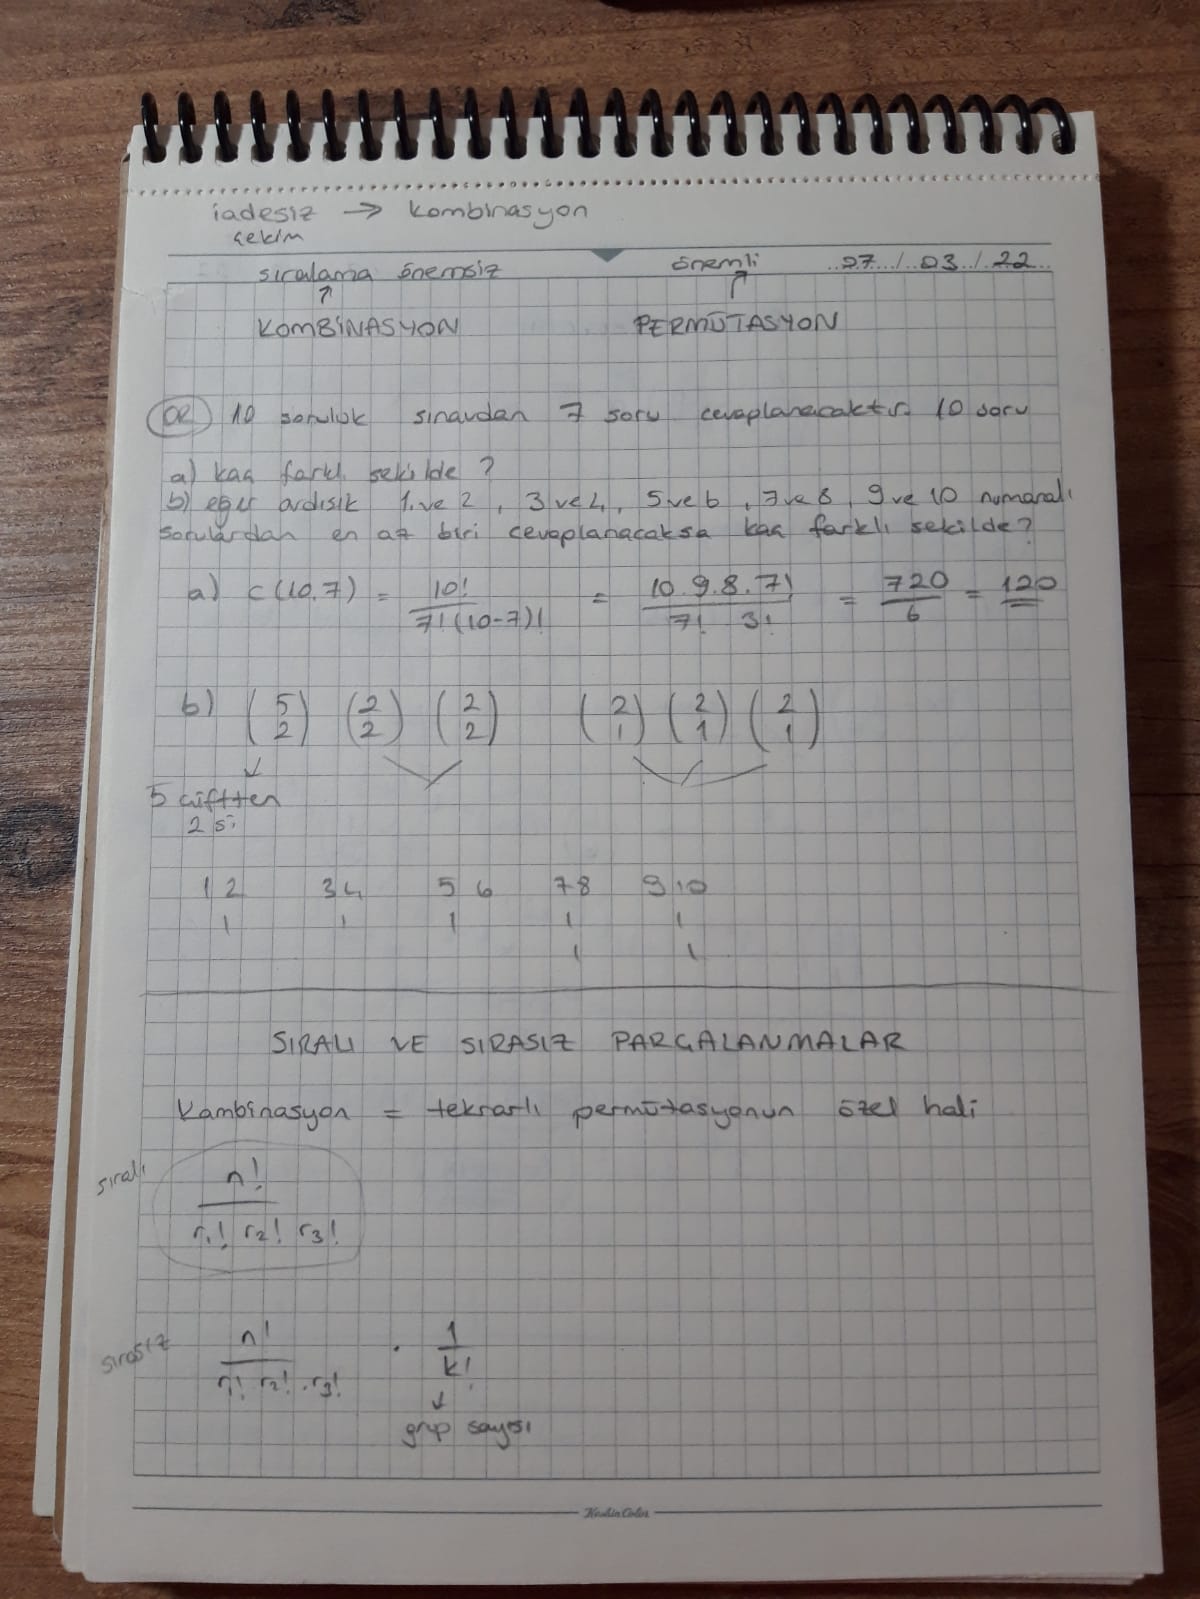 iadesiz → kombinasyon
çekim
sıralama önemsiz önemli 07/03/22
↑
KOMBİNASYON PERMÜTASYON
ÖR 10 soruluk sınavdan 7 soru cevaplanacaktır. 10 soru
a) kaç farklı şekilde ?
b) eğer ardışık 1. ve 2 , 3 ve 4, 5 ve 6 , 7 ve 8, 9 ve 10 numaralı
sorulardan en az biri cevaplanacaksa kaç farklı şekilde?
a) C(10,7) = 10! / 7!(10-7)! = 10.9.8.7! / 7! 3! = 720 / 6 = 120
b) (5 2) (2 2) (2 2) (2 1) (2 1) (2 1)
↓
5 çiftten
2 si
1 2 3 4 5 6 7 8 9 10
1 1 1 1 1
1 1
SIRALI VE SIRASIZ PARÇALANMALAR
Kombinasyon = tekrarlı permütasyonun özel hali
sıralı n! / r₁! r₂! r₃!
sırasız n! / r₁! r₂! . r₃! . 1 / k!
↓
grup sayısı
Keskin Color